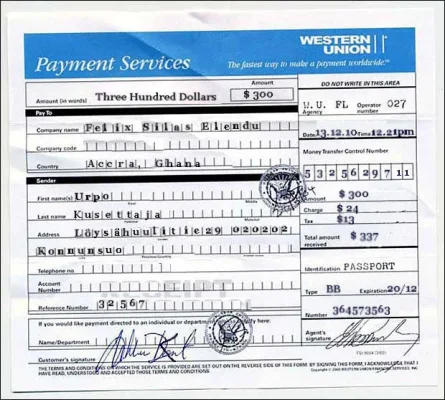 WESTERN UNION
Payment Services
The fastest way to make a payment worldwide.
Amount
DO NOT WRITE IN THIS AREA
Amount (in words) Three Hundred Dollars $ 300
W.U. FL Operator number 027
Agency
Pay To
Company name Felix Silas Elendu
Date 13.12.10 Time 12.21pm
Company code
Money Transfer Control Number
Country Accra, Ghana
5325629711
Sender
First name(s) Urpo
Amount $ 300
Last name Kusettaja
Charge $ 24
Tax $13
Address Löysähuulitie29 020202
Total amount received $ 337
Konnunsuo
Telephone no
Identification PASSPORT
Account Number
Type BB Expiration 20/12
RECEIPT
Reference Number 32567
Number 364573563
If you would like payment directed to an individual or department specify here
Name/Department
Agent's signature
Customer's signature
THE TERMS AND CONDITIONS ON WHICH THE SERVICE IS PROVIDED ARE SET OUT ON THE REVERSE SIDE OF THIS FORM. BY SIGNING THIS FORM, I ACKNOWLEDGE THAT I
HAVE READ, UNDERSTOOD AND ACCEPTED THOSE TERMS AND CONDITIONS.